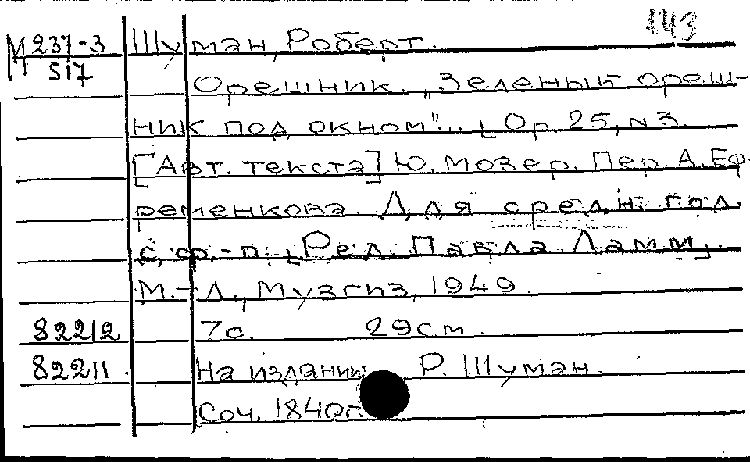 143
М 237-3 Шуман, Роберт.
517 Орешник. „Зеленый ореш-
ник под окном"... [Ор. 25, N 3.
[Авт. текста] Ю. Мозер. Пер. А. Еф-
ременкова. Для средн. гол.
с ф.-п. [Ред. Павла Ламм].
М.-Л., Музгиз, 1949.
82212 7с. 29см.
82211 На издании Р. Шуман.
Соч. 1840г.